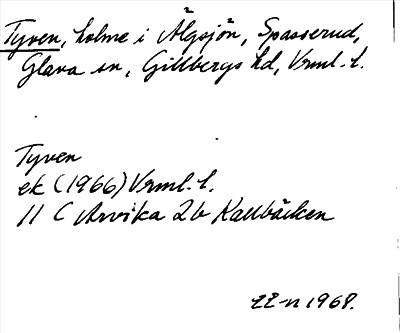 Tyven, holme i Älgsjön, Spasserud,
Glava sn, Gillbergs hd, Vrml. l.
Tyven
ek (1966) Vrml. l.
11 C Arvika 2b Kallbäcken
1968.